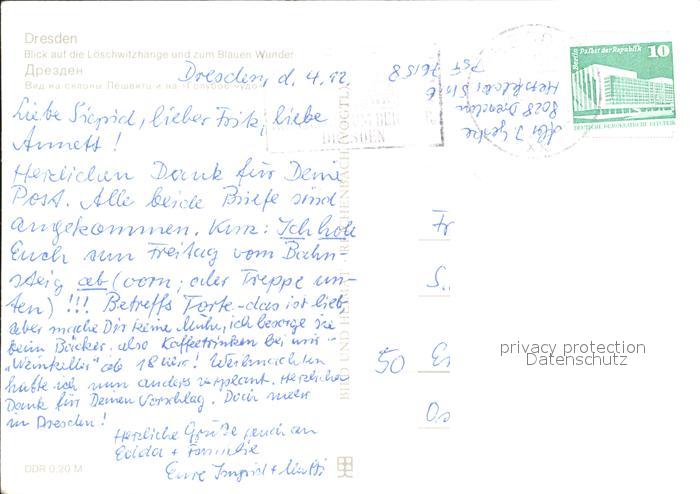 Dresden
Blick auf die Loschwitzhänge und zum Blauen Wunder
Дрезден
Вид на склоны Лошвитц и на «Голубое чудо»
Dresden, d. 4.12.
Liebe Siegrid, lieber Fritz, liebe
Annett!
Herzlichen Dank für Deine
Post. Alle beide Briefe sind
angekommen. Kurz: Ich hole
Euch nun Freitag vom Bahn-
steig ab (vorn, oder Treppe un-
ten) !!! Betreffs Torte - das ist lieb
aber mache Dir keine Mühe, ich besorge sie
beim Bäcker. also Kaffeetrinken bei mir -
"Weinkeller" ab 18 Uhr! Weihnachten
hatte ich nun anders verplant. Herzlichen
Dank für Deinen Vorschlag. Doch mehr
in Dresden!
Herzliche Grüße auch an
Edda + Familie
Eure Ingrid + Mutti
DDR 0,20 M
BILD UND HEIMAT REICHENBACH (VOGTL)
DRESDEN
8028 Dresden
PSF
Berlin Palast der Republik
10
DEUTSCHE DEMOKRATISCHE REPUBLIK
Fr
50
privacy protection
Datenschutz